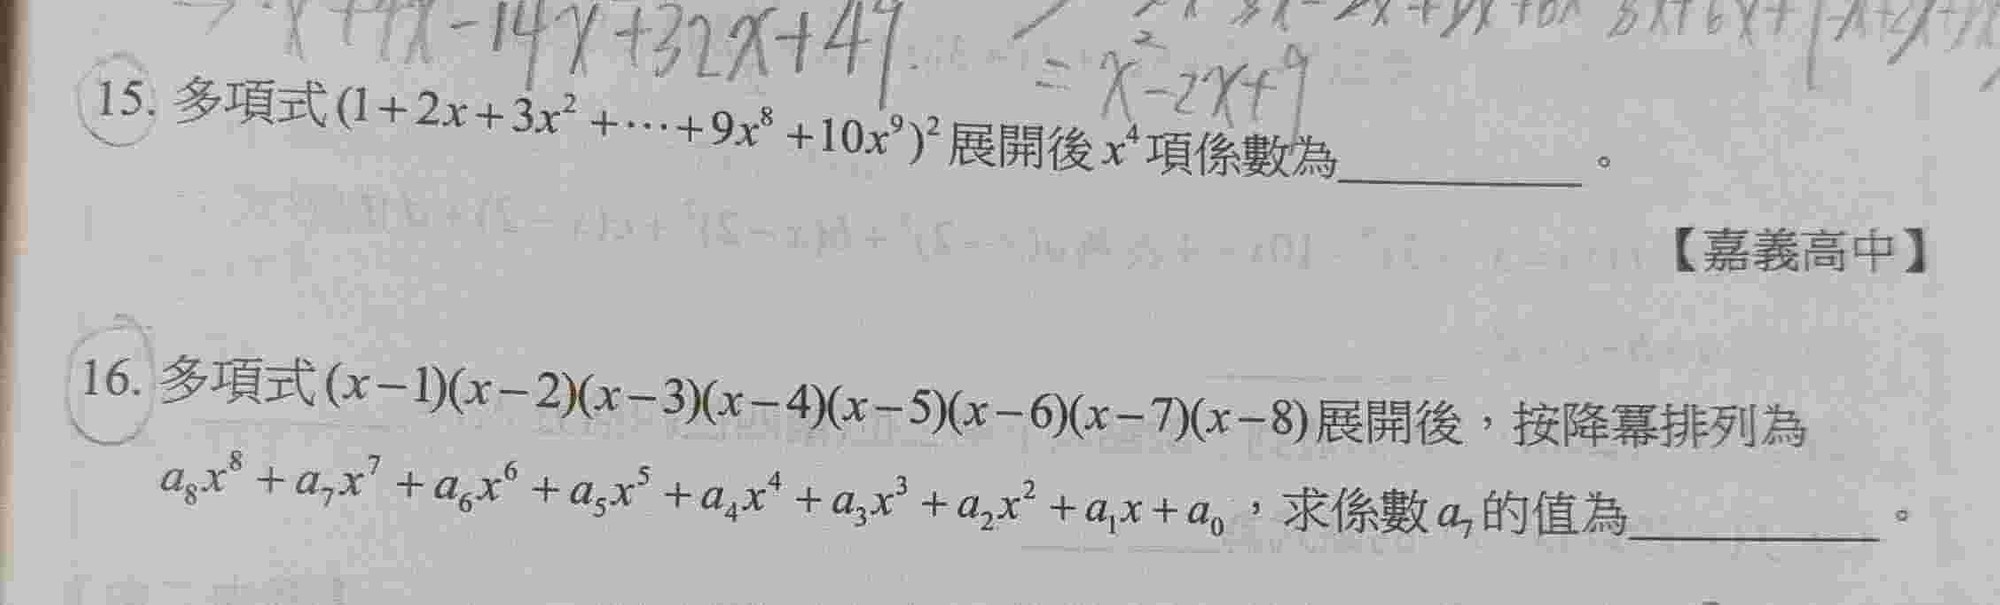 x + 4x - 14x + 32x + 49
= x² - 2x + 9
15. 多項式(1+2x+3x²+⋯+9x⁸+10x⁹)²展開後x⁴項係數為________。
【嘉義高中】
16. 多項式(x-1)(x-2)(x-3)(x-4)(x-5)(x-6)(x-7)(x-8)展開後，按降冪排列為
a₈x⁸+a₇x⁷+a₆x⁶+a₅x⁵+a₄x⁴+a₃x³+a₂x²+a₁x+a₀，求係數a₇的值為________。